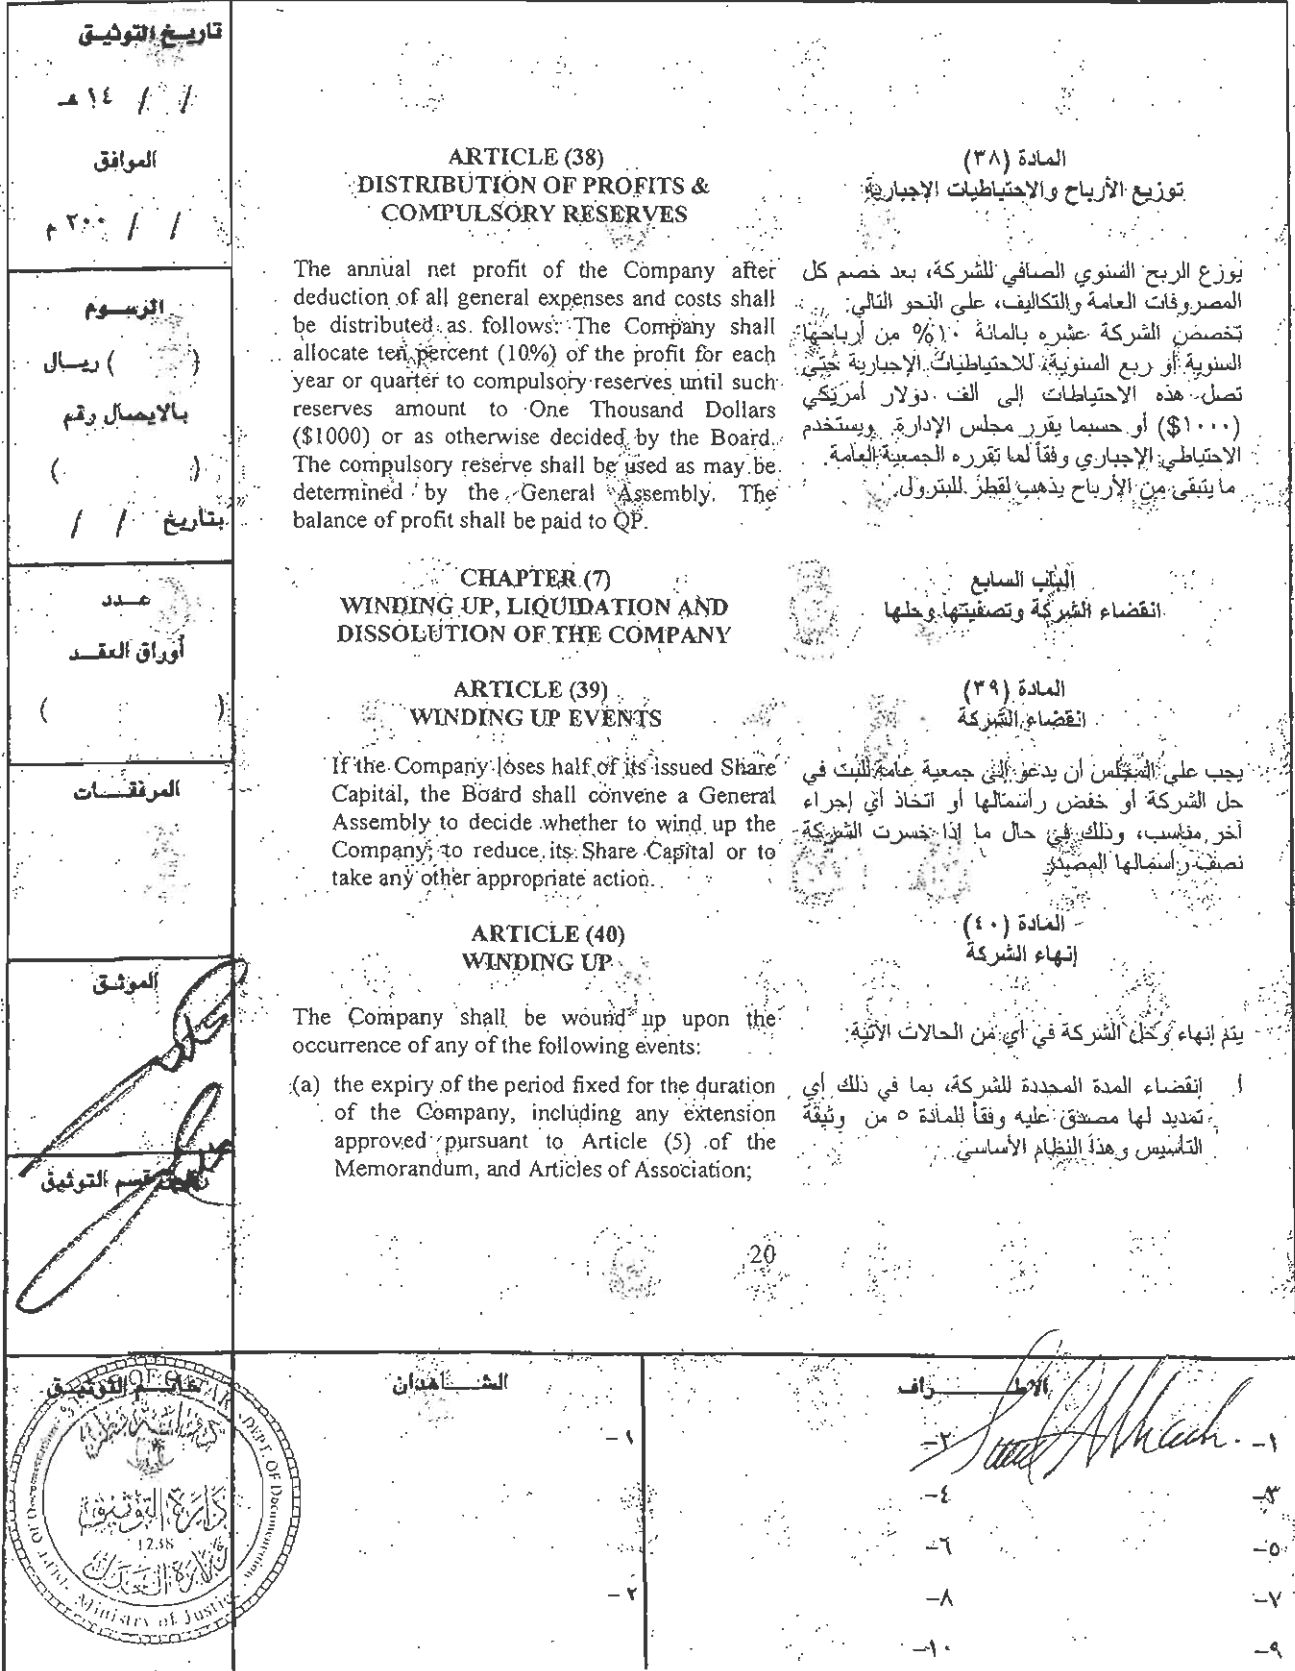 تاريخ التوثيق
/ / ١٤ هـ
الموافق
/ / ٢٠٠ م
الرسوم
( ) ريال
بالايصال رقم
( )
بتاريخ / /
عدد
أوراق العقد
( )
المرفقات
الموثق
قسم التوثيق
ARTICLE (38)
DISTRIBUTION OF PROFITS &
COMPULSORY RESERVES
The annual net profit of the Company after
deduction of all general expenses and costs shall
be distributed as follows: The Company shall
allocate ten percent (10%) of the profit for each
year or quarter to compulsory reserves until such
reserves amount to One Thousand Dollars
($1000) or as otherwise decided by the Board.
The compulsory reserve shall be used as may be
determined by the General Assembly. The
balance of profit shall be paid to QP.
CHAPTER (7)
WINDING UP, LIQUIDATION AND
DISSOLUTION OF THE COMPANY
ARTICLE (39)
WINDING UP EVENTS
If the Company loses half of its issued Share
Capital, the Board shall convene a General
Assembly to decide whether to wind up the
Company, to reduce its Share Capital or to
take any other appropriate action.
ARTICLE (40)
WINDING UP
The Company shall be wound up upon the
occurrence of any of the following events:
(a) the expiry of the period fixed for the duration
of the Company, including any extension
approved pursuant to Article (5) of the
Memorandum, and Articles of Association;
المادة (٣٨)
توزيع الأرباح والاحتياطيات الإجبارية
يوزع الربح السنوي الصافي للشركة، بعد خصم كل
المصروفات العامة والتكاليف، على النحو التالي:
تخصص الشركة عشره بالمائة ١٠% من أرباحها
السنوية أو ربع السنوية، للاحتياطيات الإجبارية حتى
تصل هذه الاحتياطات إلى ألف دولار أمريكي
(١٠٠٠$) أو حسبما يقرر مجلس الإدارة. ويستخدم
الاحتياطي الإجباري وفقاً لما تقرره الجمعية العامة.
ما يتبقى من الأرباح يذهب لقطر للبترول.
الباب السابع
انقضاء الشركة وتصفيتها وحلها
المادة (٣٩)
انقضاء الشركة
يجب على المجلس أن يدعو إلى جمعية عامة للبت في
حل الشركة أو خفض رأسمالها أو اتخاذ أي إجراء
آخر مناسب، وذلك في حال ما إذا خسرت الشركة
نصف رأسمالها المصدر
المادة (٤٠)
إنهاء الشركة
يتم إنهاء وحل الشركة في أي من الحالات الآتية:
أ. إنقضاء المدة المحددة للشركة، بما في ذلك أي
تمديد لها مصدق عليه وفقاً للمادة ٥ من وثيقة
التأسيس وهذا النظام الأساسي.
20
خاتم التوثيق
STATE OF QATAR - DEPT. OF Documentation
دولة قطر
إدارة التوثيق
1238
وزارة العدل
Ministry of Justice
الشاهدان
١-
٢-
الاطراف
١- ٢-
٣- ٤-
٥- ٦-
٧- ٨-
٩- ١٠-